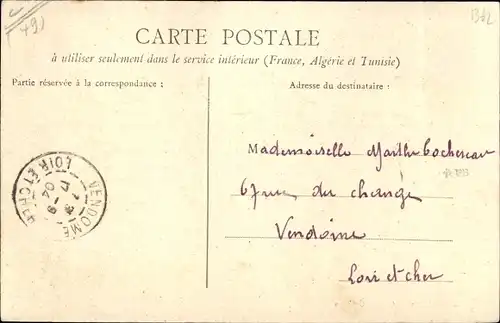 491
1382
CARTE POSTALE
à utiliser seulement dans le service intérieur (France, Algérie et Tunisie)
Partie réservée à la correspondance :
Adresse du destinataire :
Mademoiselle Marthe Cochereau
67 rue du change
Vendome
Loir et cher
VENDOME
LOIR ET CHER
04